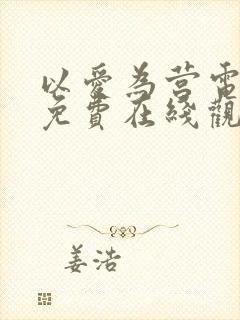 以愛為营電
免費在綫觀
姜浩